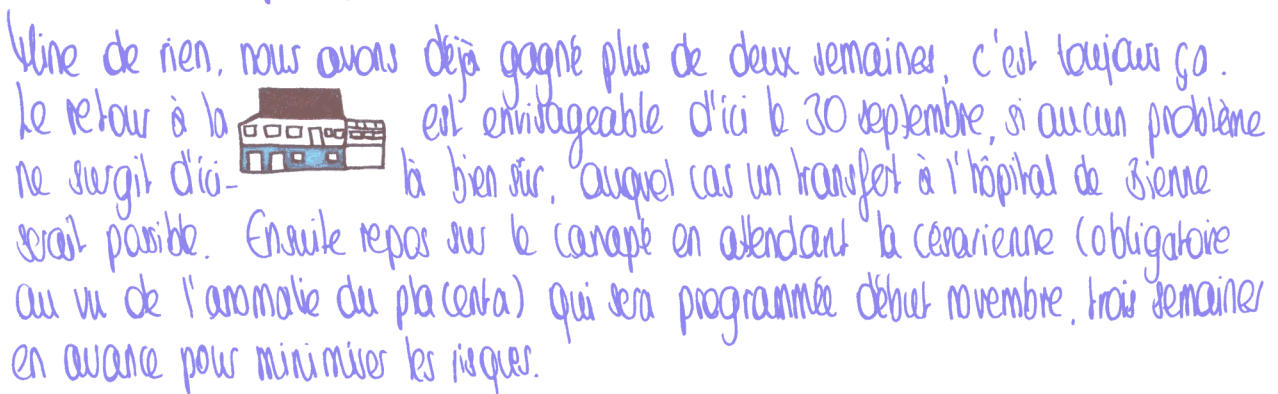 Mine de rien, nous avons déjà gagné plus de deux semaines, c'est toujours ça.
Le retour à la est envisageable d'ici le 30 septembre, si aucun problème
ne surgit d'ici-là bien sûr, auquel cas un transfert à l'hôpital de Bienne
serait possible. Ensuite repos sur le canapé en attendant la césarienne (obligatoire
au vu de l'anomalie du placenta) qui sera programmée début novembre, trois semaines
en avance pour minimiser les risques.